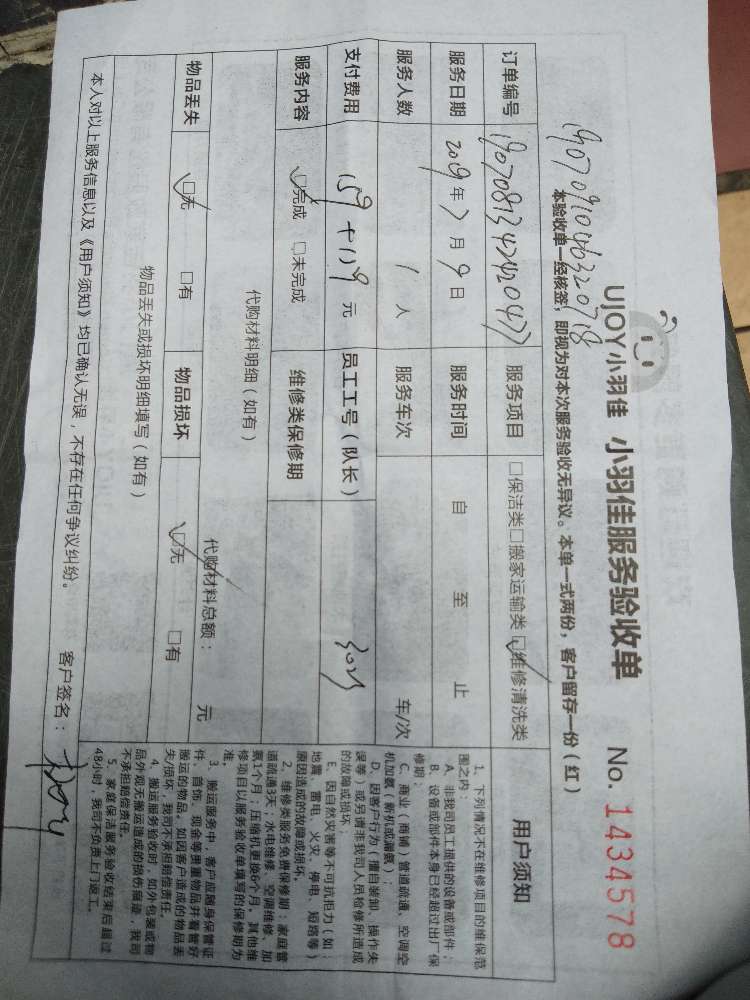 UJOY小羽佳 小羽佳服务验收单 No. 1434578
1907091046320718
本验收单一经核签,即视为对本次服务验收无异议。本单一式两份,客户留存一份(红)
订单编号 1907081342420477 服务项目 □保洁类□搬家运输类☑维修清洗类
服务日期 2019年7月9日 服务时间 自 至 止
服务人数 1人 服务车次 车/次
支付费用 159+119元 员工工号(队长) 3023
服务内容 ☑完成 □未完成 维修类保修期
代购材料明细(如有)
代购材料总额: 元
物品丢失 ☑无 □有 物品损坏 ☑无 □有
物品丢失或损坏明细填写(如有)
本人对以上服务信息以及《用户须知》均已确认无误,不存在任何争议纠纷。 客户签名:
用户须知
1、下列情况不在维修项目的维保范
围之内:
A、非我司员工提供的设备或部件;
B、设备或部件本身已经超过出厂保
修期;
C、商业(商铺)管道疏通、空调空
机加氨(新机或漏氨);
D、因客户行为(擅自装卸、操作失
误等)或另请非我司人员检修所造成
的故障或损坏;
E、因自然灾害等不可抗拒力(如:
地震、雷电、火灾、停电、短路等)
原因造成的故障或损坏。
2、维修类服务免费保修期:家庭管
道疏通3天;水电维修、空调维修、加
氨1个月;压缩机更换6个月,其他维
修项目以服务验收单填写的保修期为
准。
3、搬运服务中,客户应随身保管证
件、首饰、现金等贵重物品并看管好
搬运的物品,如因客户造成的物品丢
失/损坏,我司不承担赔偿责任。
4、搬运服务验收时,如外包装或物
品外观无搬运造成的损伤痕迹,我司
不承担赔偿责任。
5、家庭保洁服务验收结束后超过
48小时,我司不负责上门返工。